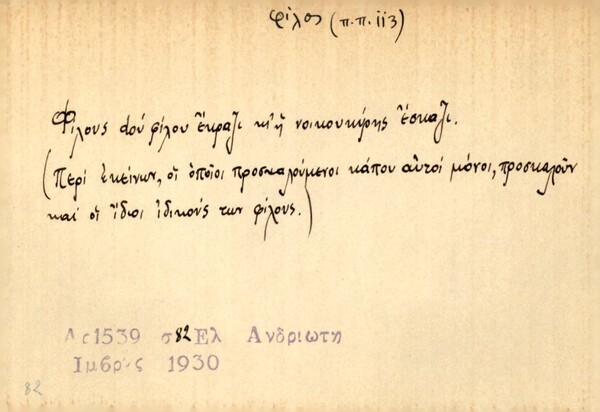 φίλος (π.π. 113)
Φίλους dοὺ φίλου ἔκραζι κ'ἡ νοικουκύρης ἔσκαζι.
(Περί ἐκείνων, οἱ ὁποῖοι προσκαλούμενοι κάπου αὐτοί μόνοι, προσκαλοῦν
καί οἱ ἴδιοι ἰδικούς των φίλους.)
Αc1539 σ82 Ελ Ανδριώτη
Ιμβρος 1930
82